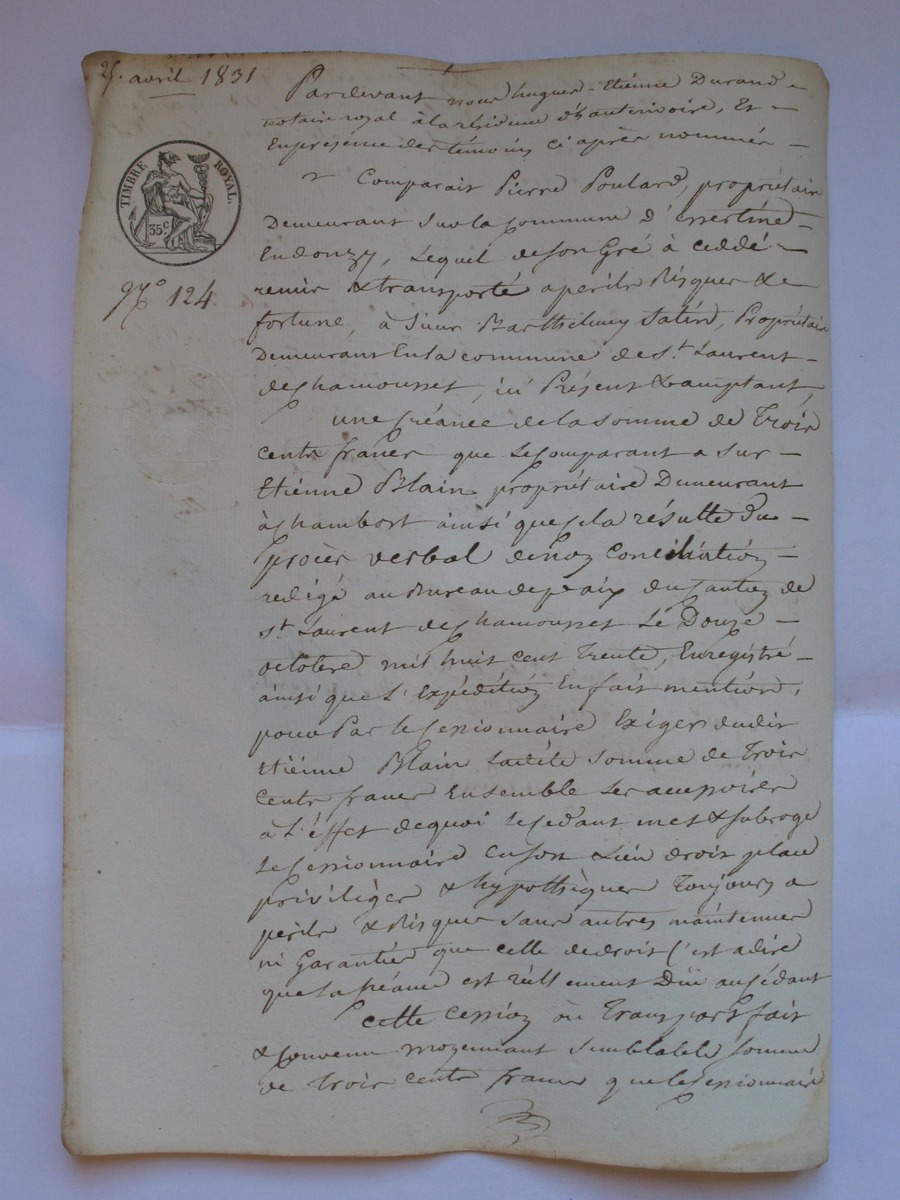 25. avril 1831
Pardevant nous hugues-Etiénne Durand
notaire royal à la résidence d'hauterivoire, Et
En présence des témoins ci après nommés
TIMBRE ROYAL.
35c.
No 124
Comparait Pierre Poulard, propriétaire
Demeurant sur la Commune d'essertine
En donzy, Lequel de son Gré à ceddé
remis & transporté a perils Risques & 
fortune, à Sieur Barthélemy Satin, Propriétaire
Demeurant En la commune de St. Laurent
de Chamousset, ici Présent & acceptant
une Créance de la somme de Trois
cents francs que le Comparant a Sur
Etiénne Blain propriétaire Demeurant
à Chambost ainsi que Cela résulte du
procès verbal de non Conciliation
redigé au Bureau de paix du Canton de
St. Laurent de Chamousset Le Douze
octobre mil huit cent Trente, Enregistré
ainsi que L'Expédition En fait mention,
pour Par le Cessionnaire Exiger dudit
Etiénne Blain Ladite Somme de Trois
Cents francs Ensemble Les accessoires
à L'éffet de quoi le Cédant met & subroge
le Cessionnaire En son Lieu droit place
priviléges & hypothèques Toujours a
périls & Risques Sans autres maintenue
ni Garantie que celle de droit C'est a dire
que la Créance est réellement Düe au Cédant
Cette Cession ou Transport fait
& Convenu moyennant Semblable Somme
de Trois cents francs que le Cessionnaire